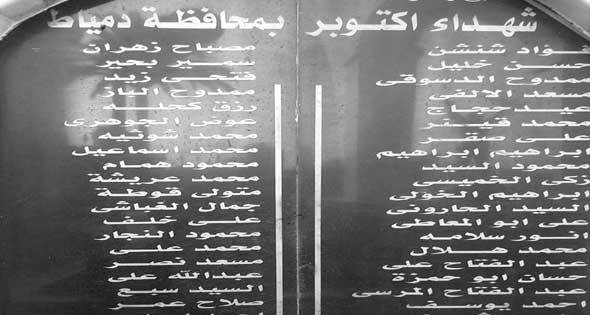 شهداء اكتوبر بمحافظة دمياط
فؤاد شنشن
حسن خليل
ممدوح الدسوقى
مسعد الالفى
عيد حجاج
محمد قينر
على صقر
ابراهيم ابراهيم
محمود السيد
زكى الخميسى
ابراهيم الخولى
السيد الحارونى
على ابو المعاطى
انور سلامه
محمد هلال
عبد الفتاح على
حسان ابو حمزة
عبد الفتاح المرسى
احمد يوسف
مصباح زهران
سمير بحير
فتحى زيد
ممدوح الباز
رزق كحله
عوض الجوهرى
محمد شوتيه
محمد اسماعيل
محمود همام
محمد عريشة
متولى قوطة
جمال القباشى
على خلف
محمود النجار
محمد على
مسعد نصر
عبدالله على
السيد سبع
صلاح عمر